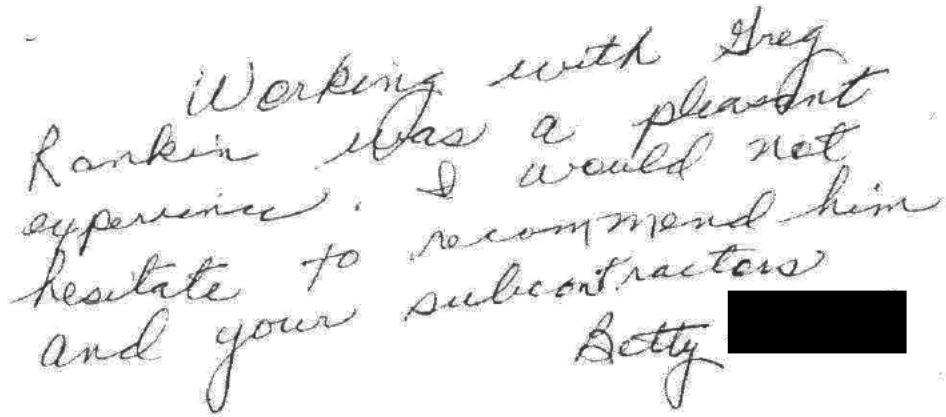 Working with Greg
Rankin was a pleasant
experience. I would not
hesitate to recommend him
and your subcontractors
Betty